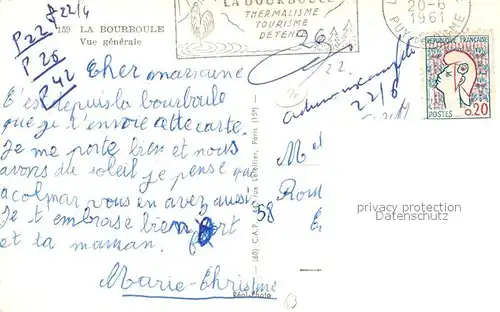 159 LA BOURBOULE
Vue générale
P22 22/4
P 26
P 42
LA BOURBOULE
THERMALISME
TOURISME
DETENTE
20-6
1961
PUY
REPUBLIQUE FRANÇAISE
POSTES 0,20
26
22.
22/6
Cher marraine
C'est depuis la bourboule
que je t'envoie cette carte.
Je me porte bien et nous
avons du soleil je pense que
a colmar vous en avez aussi
Je t'embrase bien fort
et ta maman.
Marie-Christine
Réel-Photo
C.A.P. rue Paris (15e)
M
58
privacy protection
Datenschutz